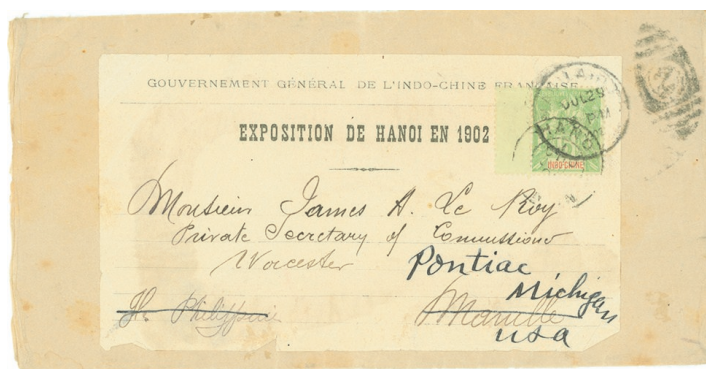 GOUVERNEMENT GÉNÉRAL DE L'INDO-CHINE FRANÇAISE
EXPOSITION DE HANOI EN 1902
JUL 28
PM
HANOI
INDO-CHINE
Monsieur James A. Le Roy
Private Secretary of Commissioner
Worcester
Pontiac
Michigan
Il. Philippine
Manille
USA